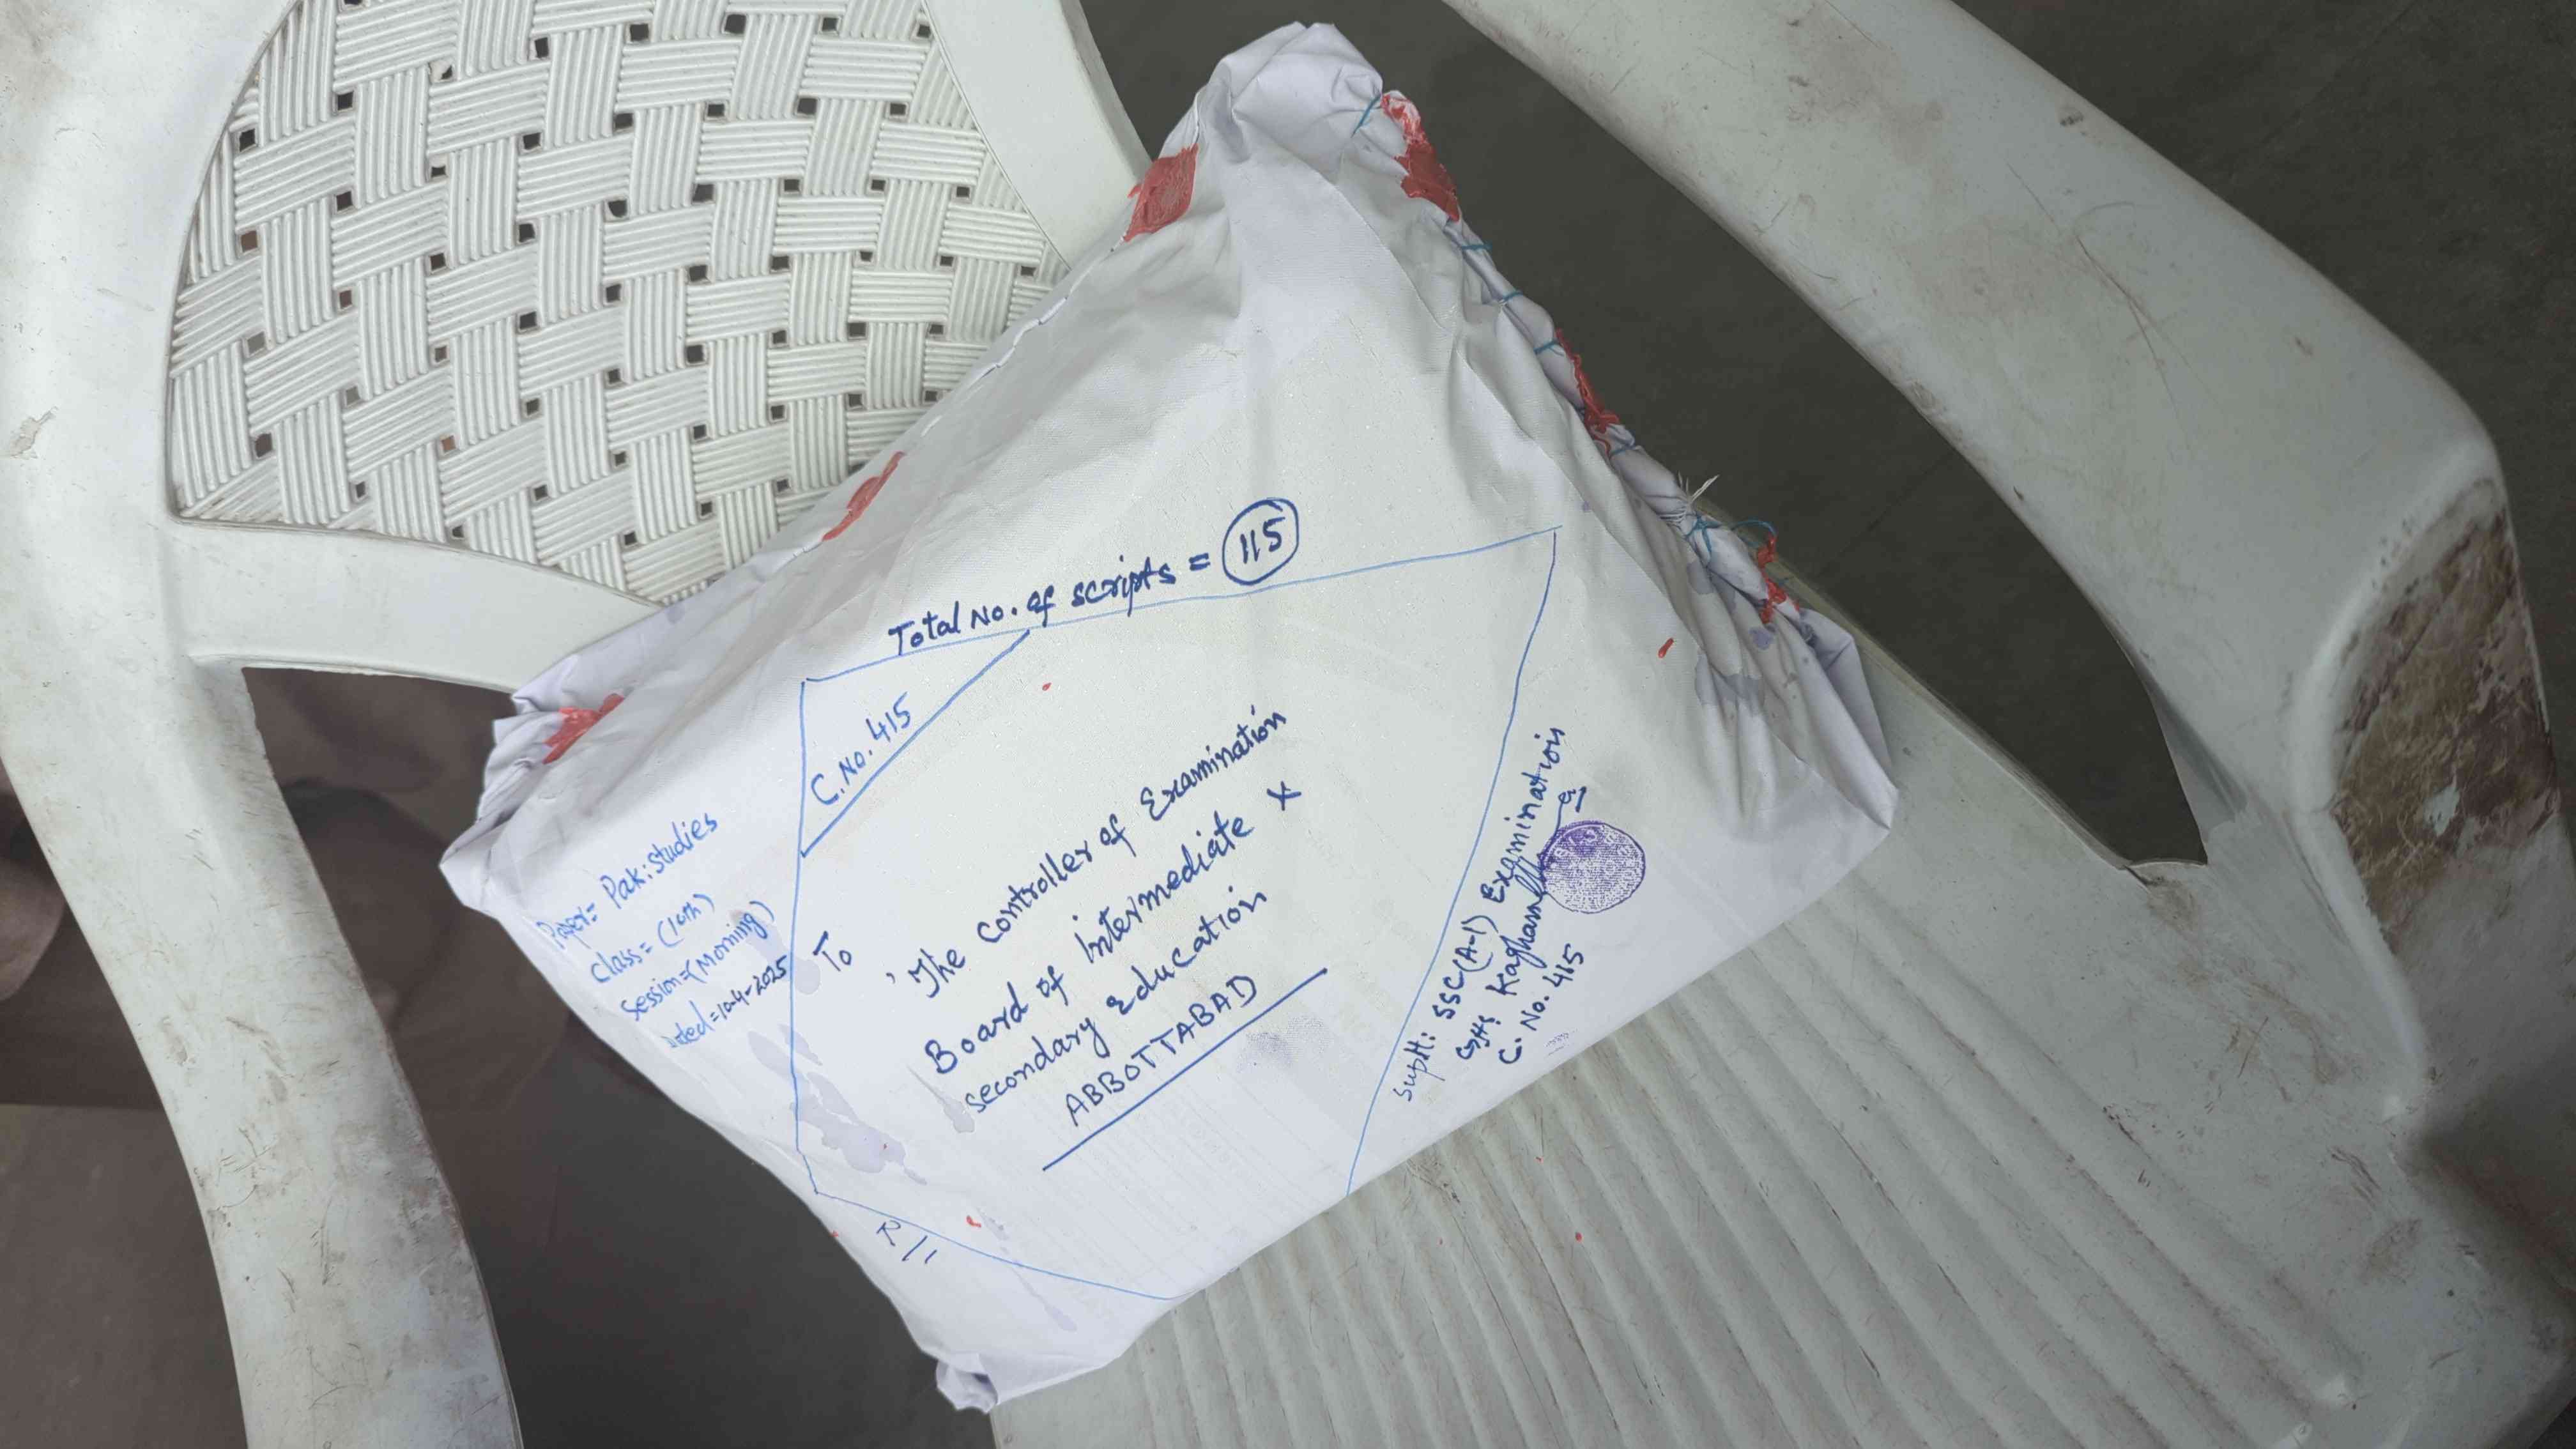 Total No. of scripts = 115
C.No. 415
Paper= Pak: studies
class= (10th)
Session=(Morning)
Dated=10-4-2025
To
The Controller of Examination
Board of Intermediate &
secondary Education
ABBOTTABAD
Supdt: SSC(A-1) Examination
GHS Kaghan
C. No. 415
R/1